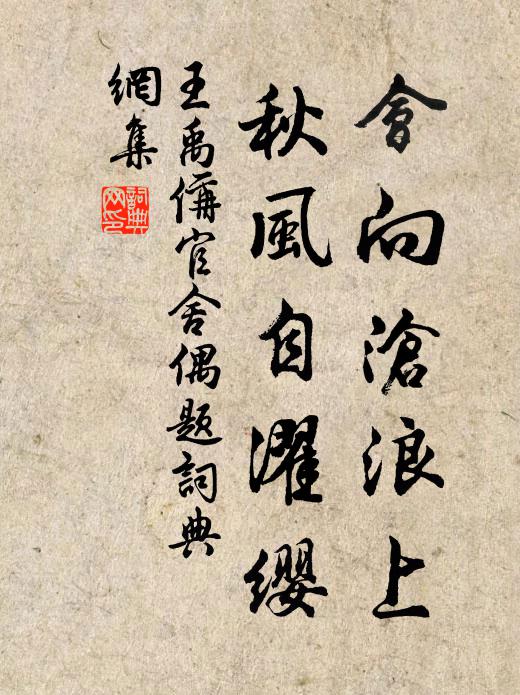 會向滄浪上
秋風自濯缨
王禹偁官舍偶题詞典
網集
詞典
网印